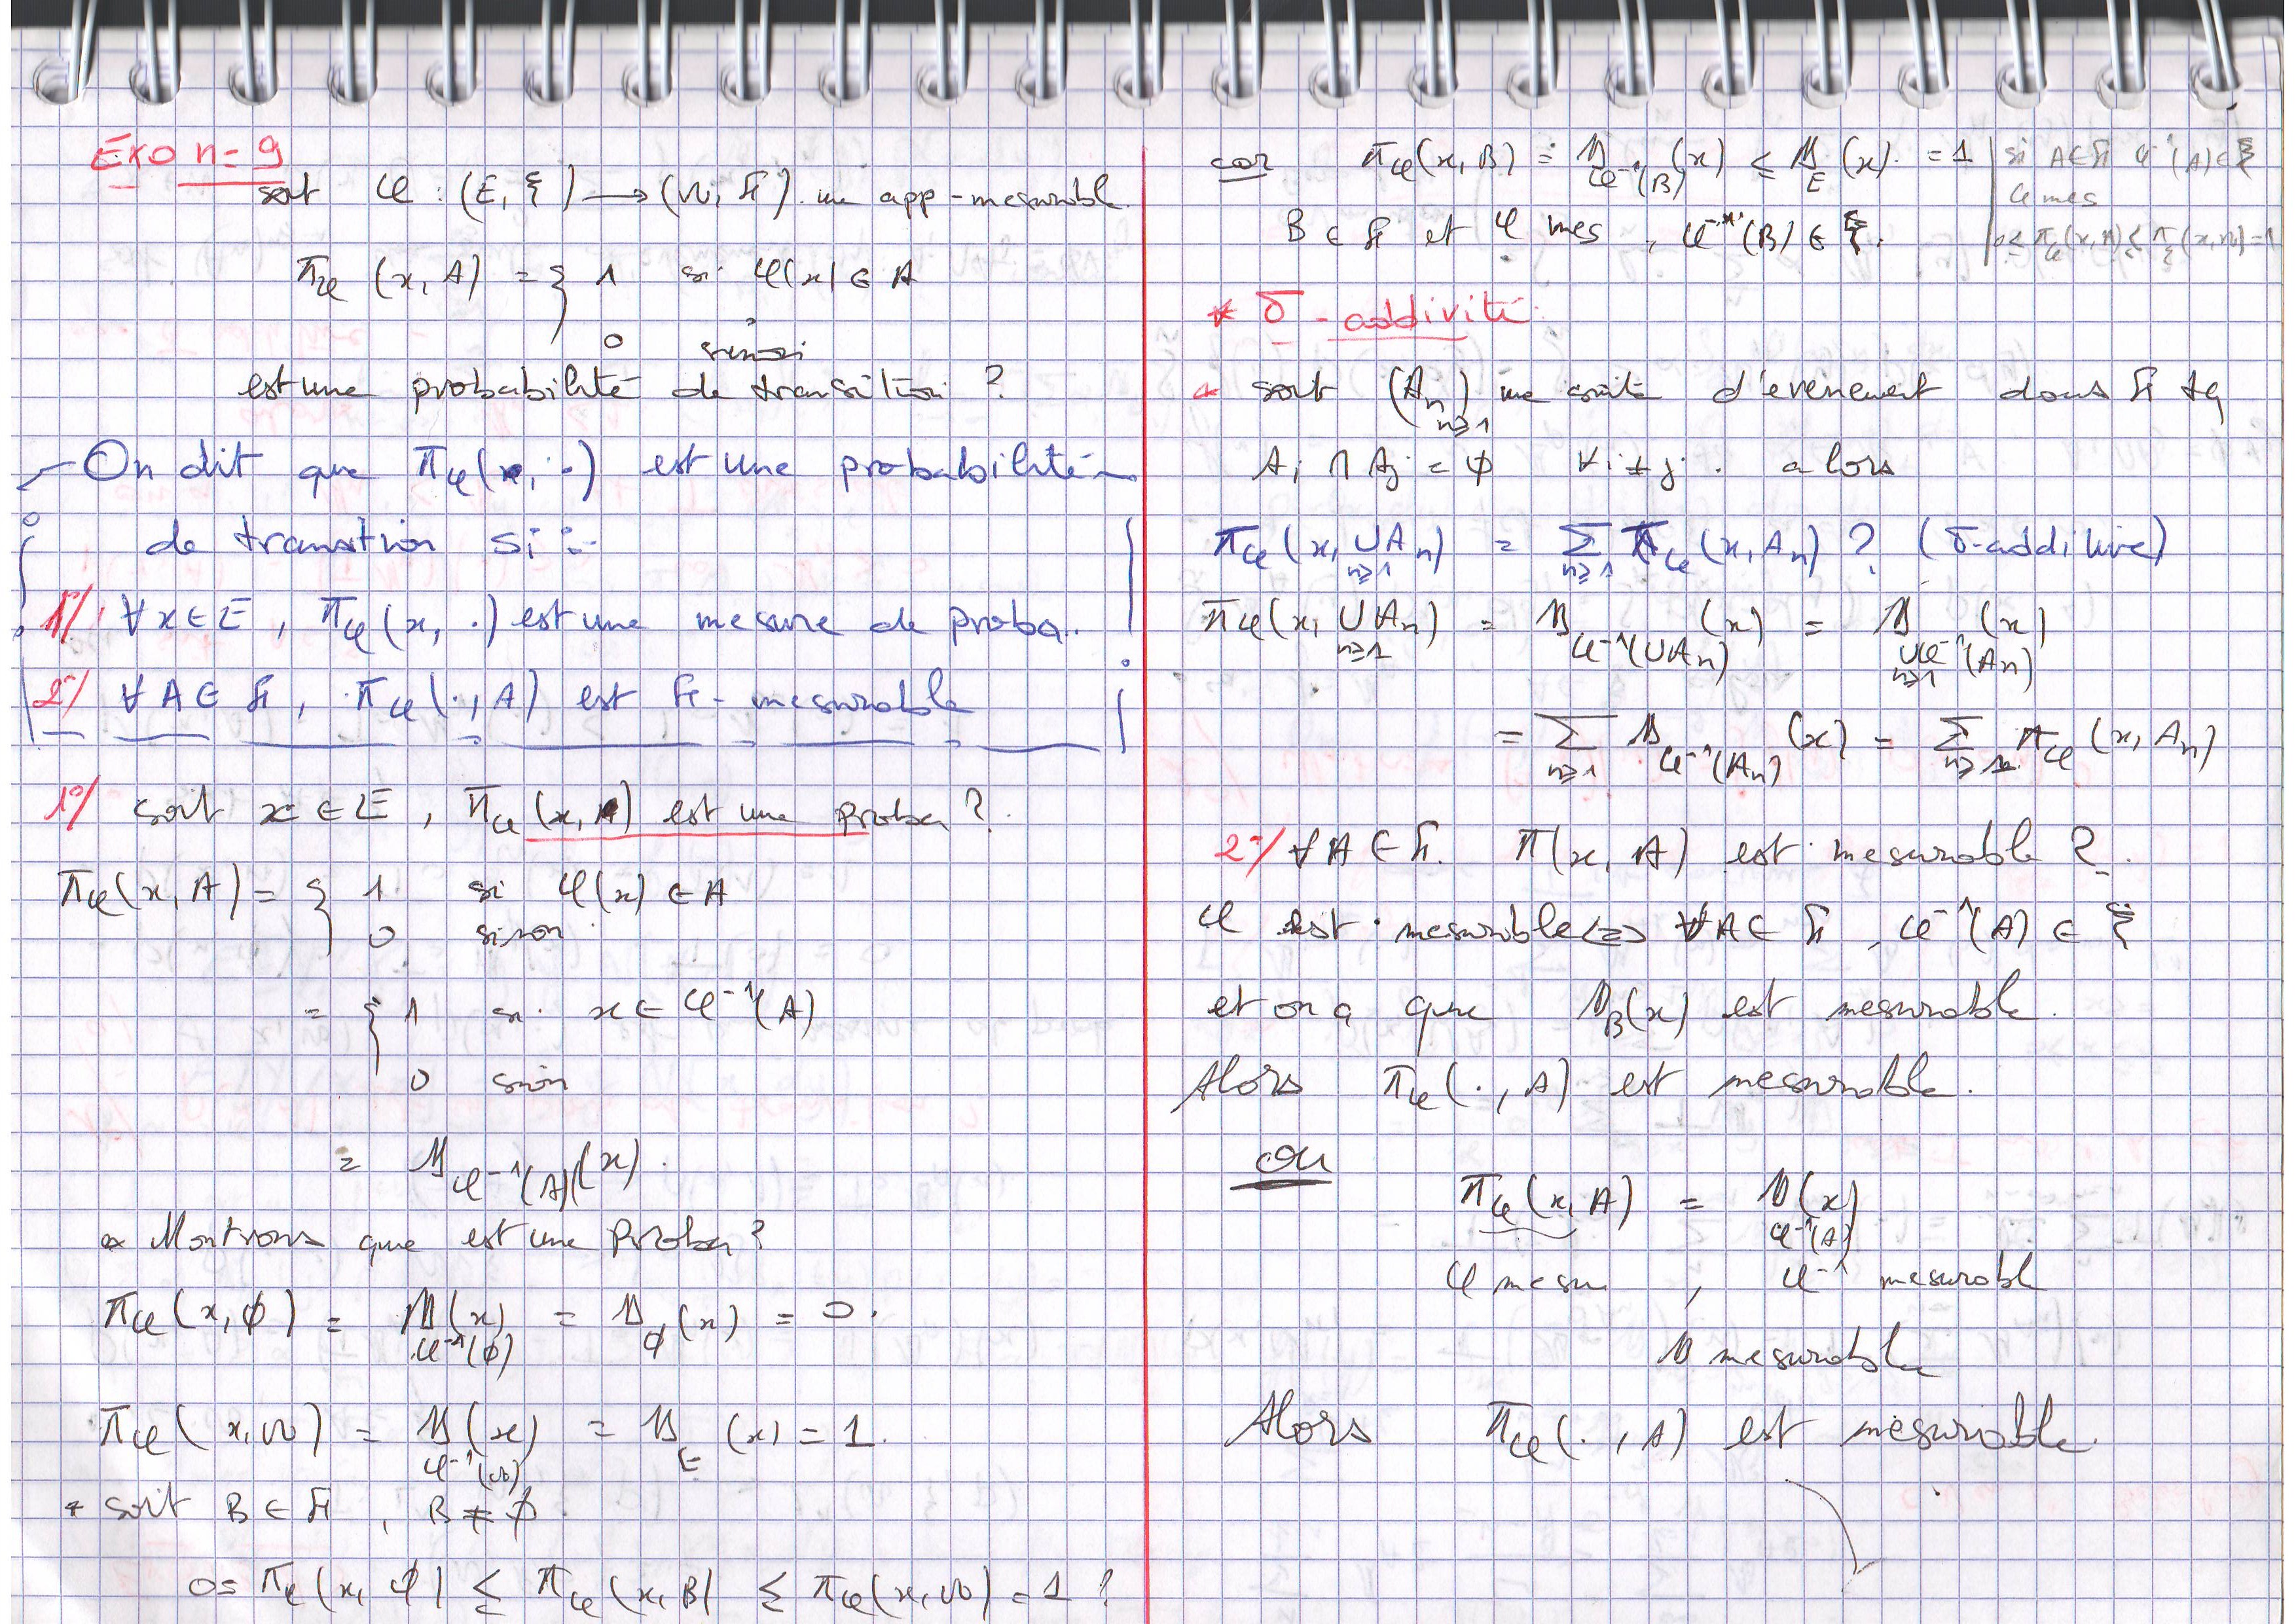 Exo n= 9
soit φ : (E, ξ) → (Ω, F). une app-mesurable.
π_φ (x, A) = { 1 si φ(x) ∈ A
0 sinon
est une probabilité de transition ?
On dit que π_φ(x, ·) est une probabilité
de transition si :-
1°/ ∀x∈E, π_φ(x, ·) est une mesure de proba.
2°/ ∀A∈F, π_φ(·, A) est F-mesurable
1°/ soit x∈E, π_φ(x, A) est une proba ?
π_φ(x, A) = { 1 si φ(x) ∈ A
0 sinon
= { 1 si x∈φ⁻¹(A)
0 sinon
= 𝟙_φ⁻¹(A)(x).
Montrons que est une Proba ?
π_φ(x, ∅) = 𝟙_φ⁻¹(∅)(x) = 𝟙_∅(x) = 0.
π_φ(x, Ω) = 𝟙_φ⁻¹(Ω)(x) = 𝟙_E(x) = 1.
* soit B∈F, B ≠ ∅.
0= π_φ(x, ∅) ≤ π_φ(x, B) ≤ π_φ(x, Ω) = 1 ?
car π_φ(x, B) = 𝟙_φ⁻¹(B)(x) ≤ 𝟙_E(x). = 1
B∈F et φ mes, φ⁻¹(B) ∈ ξ.
si A∈F φ⁻¹(A)∈ξ
φ mes
0 ≤ π_φ(x, A) ≤ π_ξ(x, Ω) = 1
* σ - addivité
soit (A_n)_n≥1 une suite d'evenement dans F tq
A_i ∩ A_j = ∅ ∀i≠j. alors
π_φ(x, ∪_n≥1 A_n) = Σ_n≥1 π_φ(x, A_n) ? (σ-additive)
π_φ(x, ∪_n≥1 A_n) = 𝟙_φ⁻¹(∪A_n)(x) = 𝟙_∪_n≥1 φ⁻¹(A_n)(x)
= Σ_n≥1 𝟙_φ⁻¹(A_n)(x) = Σ_n≥1 π_φ(x, A_n)
2°/ ∀A∈F. π(x, A) est mesurable ?
φ est mesurable <=> ∀A∈F, φ⁻¹(A) ∈ ξ
et on a que 𝟙_B(x) est mesurable.
Alors π_φ(·, A) est mesurable.
ou
π_φ(x, A) = 𝟙_φ⁻¹(A)(x)
φ mesu , φ⁻¹ mesurable
𝟙 mesurable
Alors π_φ(·, A) est mesurable.